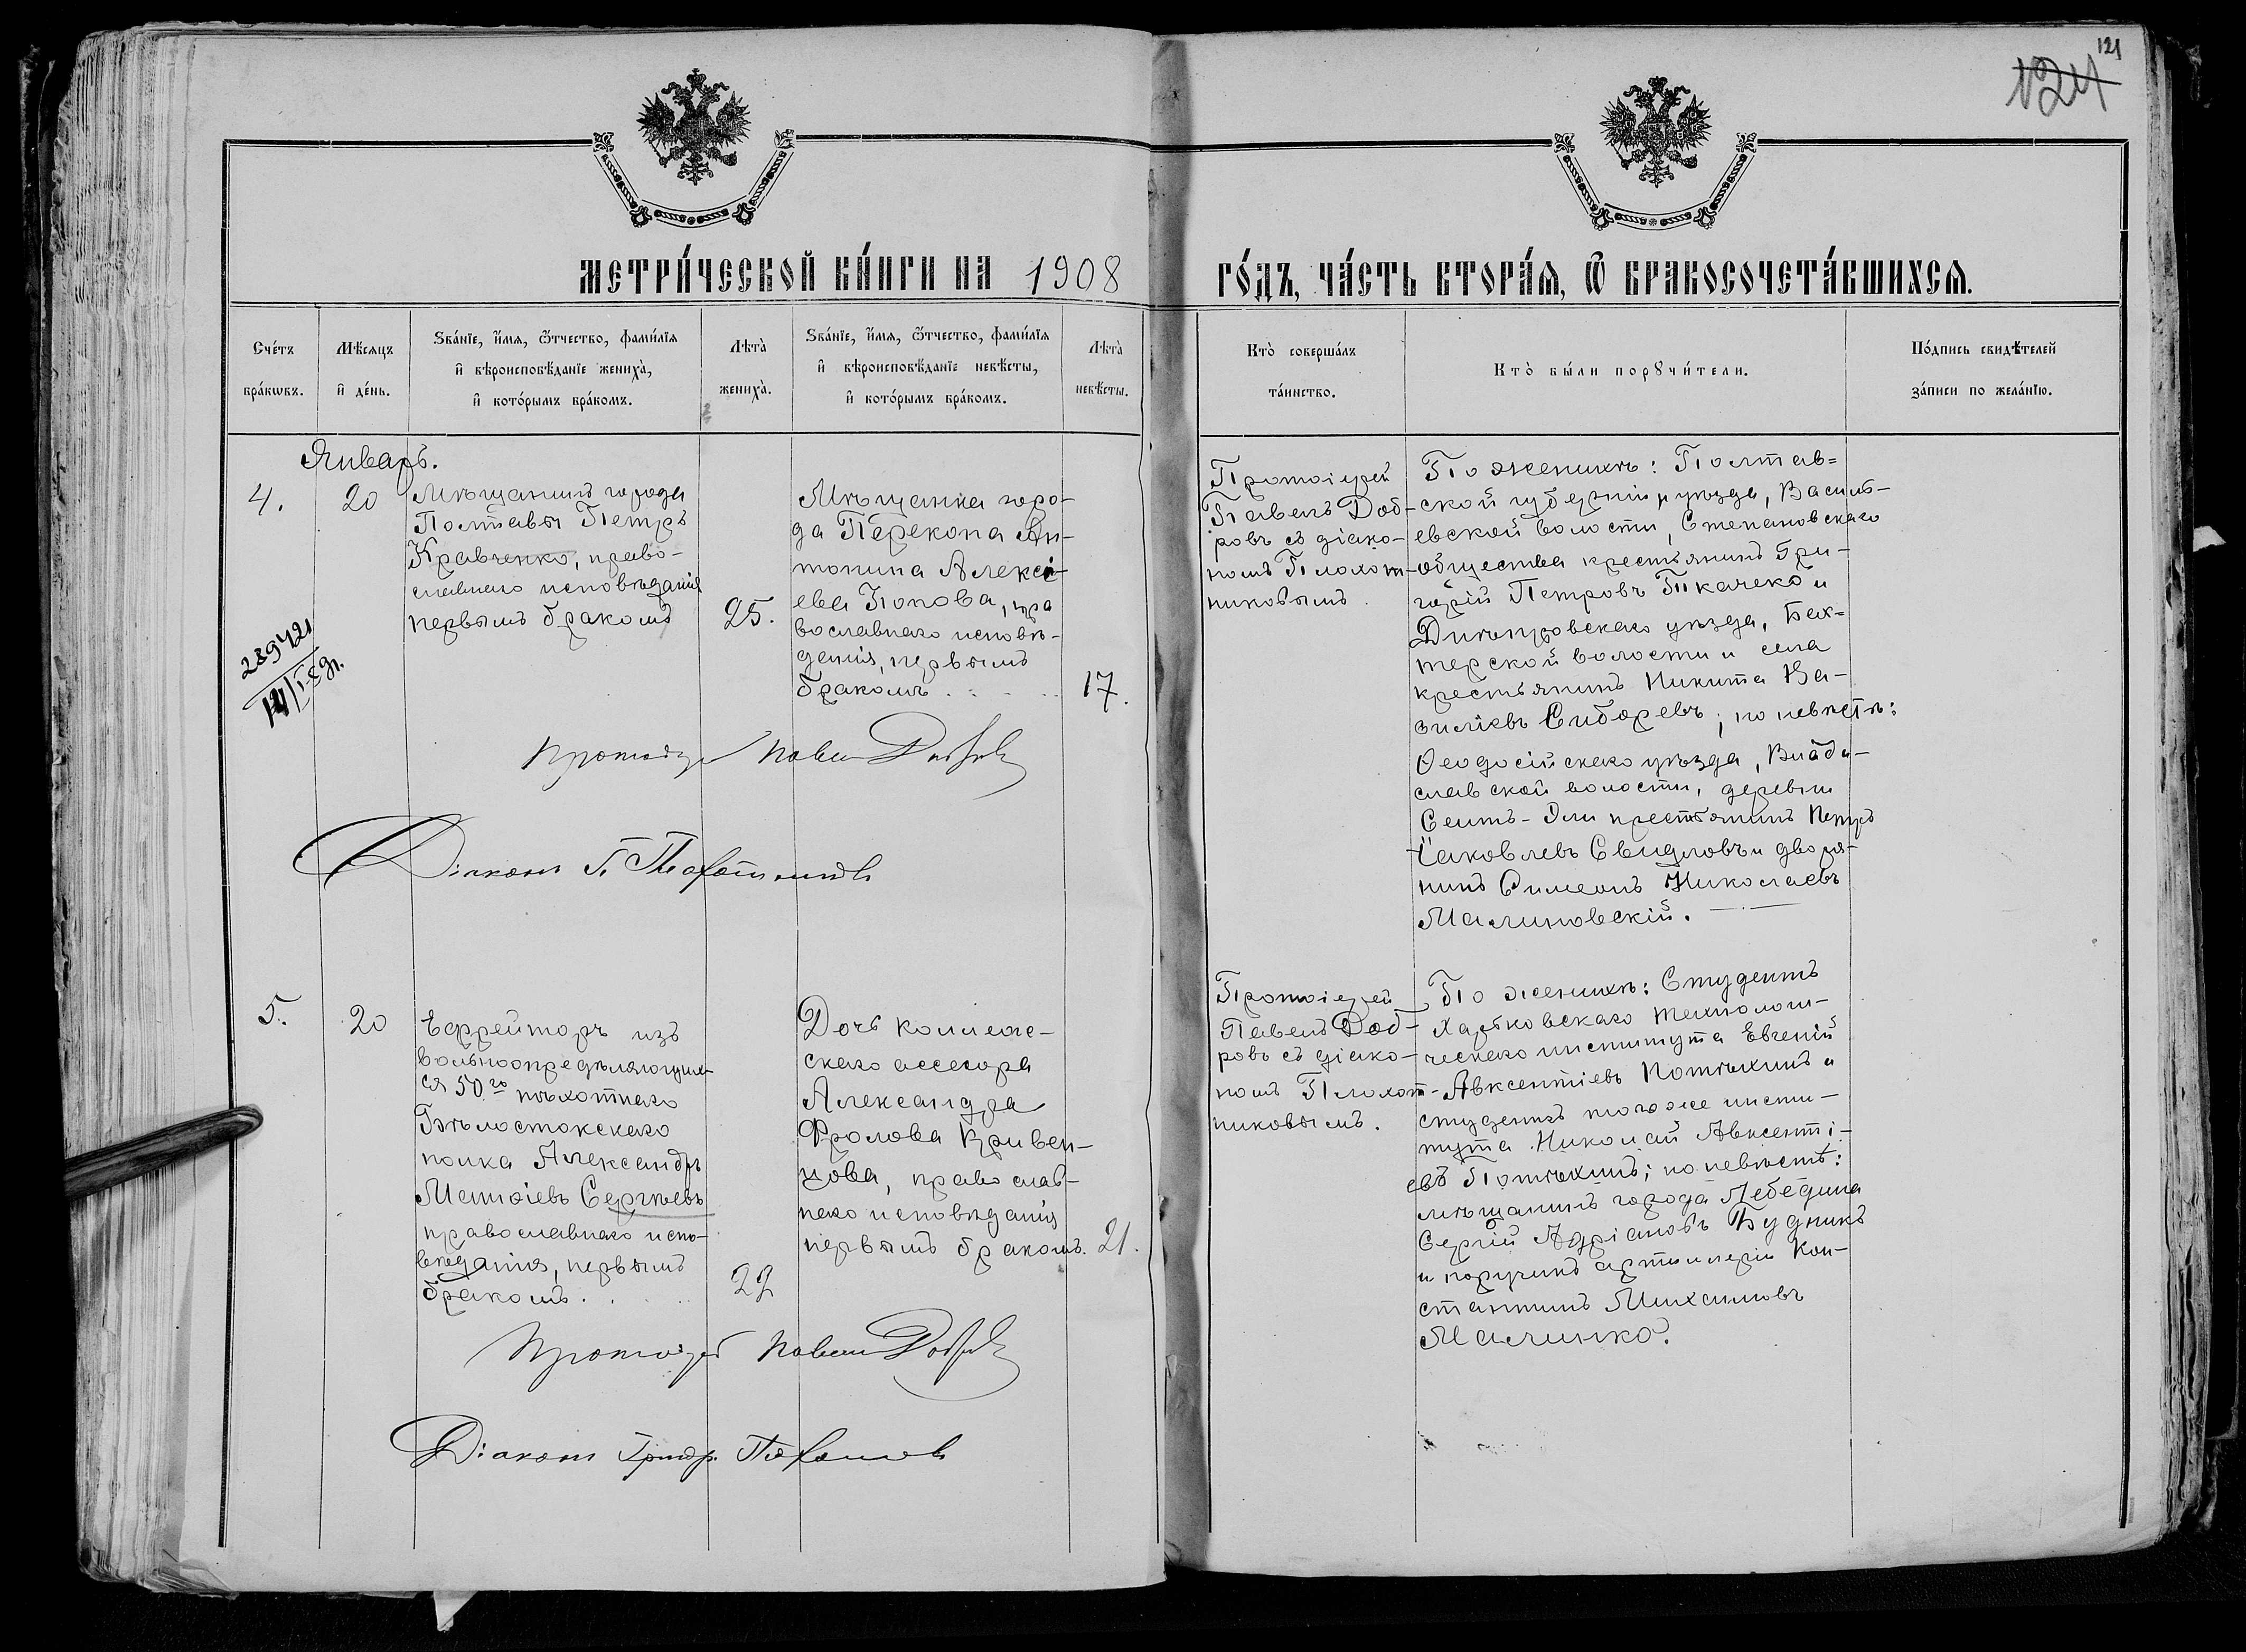 121
124
МЕТРИ́ЧЕСКОЙ КНИ́ГИ НА 1908 ГО́ДЪ, ЧА́СТЬ ВТОРА́Я, Ѿ БРАКОСОЧЕТА́ВШИХСЯ.
Сче́тъ бра́кωвъ.
Мѣ́сяцъ и҆ де́нь.
Ѕва́нїе, и҆́мя, ѻ҆́тчество, фами́лїя
и҆ вѣроисповѣ́данїе жениха̀,
и҆ кото́рымъ бра́комъ.
Лѣта̀ жениха̀.
Ѕва́нїе, и҆́мя, ѻ҆́тчество, фами́лїя
и҆ вѣроисповѣ́данїе невѣ́сты,
и҆ кото́рымъ бра́комъ.
Лѣта̀ невѣ́сты.
Кто̀ соверша́лъ
та́инство.
Кто̀ бы́ли порꙋчи́тели.
По́дпись свидѣ́телей
за́писи по жела́нїю.
Январь.
4.
20
Мѣщанинъ города
Полтавы Петръ
Кравченко, право-
славнаго исповѣданія
первымъ бракомъ
25.
Мѣщанка горо-
да Перекопа Ан-
тонина Алексі-
ева Попова, пра
вославнаго исповѣ-
данія, первымъ
бракомъ . . . .
17.
Протоіерей
Павелъ Доб-
ровъ съ діако-
номъ Плохот-
никовымъ.
По женихѣ: Полтав=
ской губерніи и уѣзда, Василь-
евской волости, Степановскаго
общества крестьянинъ Гри-
горій Петровъ Ткачеко и
Днѣпровскаго уѣзда, Бех=
терской волости и села
крестьянинъ Никита Ва-
силіевъ Сибаревъ; по невѣстѣ:
Ѳеодосійскаго уѣзда, Влади-
славской волости, деревни
Сеитъ-Эли крестьянинъ Петръ
Іаковлевъ Свидловъ и дворя-
нинъ Симеонъ Николаевъ
Малиновскій.
289421
Протоіерей Павелъ Добровъ
Діаконъ Г. Плохотниковъ
5.
20
Ефрейторъ изъ
вольноопредѣляющих-
ся 50го пѣхотнаго
Бѣлостокскаго
полка Александръ
Матѳіевъ Сергѣевъ
православнаго испо-
вѣданія, первымъ
бракомъ. . . .
22
Дочь коллеж-
скаго ассесора
Александра
Фролова Кривен-
цова, православ-
наго исповѣданія
первымъ бракомъ.
21.
Протоіерей
Павелъ Доб-
ровъ съ діако-
номъ Плохот-
никовымъ.
По женихѣ: Студентъ
Харьковскаго технологи-
ческаго института Евгеній
Авксентіевъ Потѣхинъ и
студентъ того же инсти-
тута Николай Авксенті-
евъ Потѣхинъ; по невѣстѣ:
мѣщанинъ города Лебедина
Сергій Адріановъ Будникъ
и поручикъ артиллеріи Кон-
стантинъ Михаиловъ
Малинко.
Протоіерей Павелъ Добровъ
Діаконъ Григор. Плохотниковъ